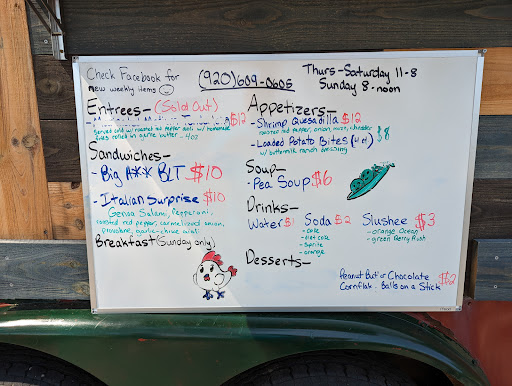 Check Facebook for
new weekly items
(920) 609-0605
Thurs-Saturday 11-8
Sunday 8-noon
Entrees- (Sold Out)
$12
served cold w/ roasted red pepper aioli w/ homemade
garlic butter - 4oz
Sandwiches-
- Big A** BLT $10
- Italian Surprise $10
Genoa Salami, Pepperoni,
roasted red pepper, caramelized onion,
provolone, garlic-chive aioli
Breakfast (Sunday only)
Appetizers-
- Shrimp Quesadilla $12
roasted red pepper, onion, cheddar
- Loaded Potato Bites (4 ct) $8
w/ buttermilk ranch
Soup-
- Pea Soup $6
Drinks-
Water $1
Soda $2
- coke
- diet coke
- sprite
- orange
Slushee $3
- orange Ocean
- green Berry Rush
Desserts-
Peanut Butter Chocolate
Cornflake Balls on a Stick $2